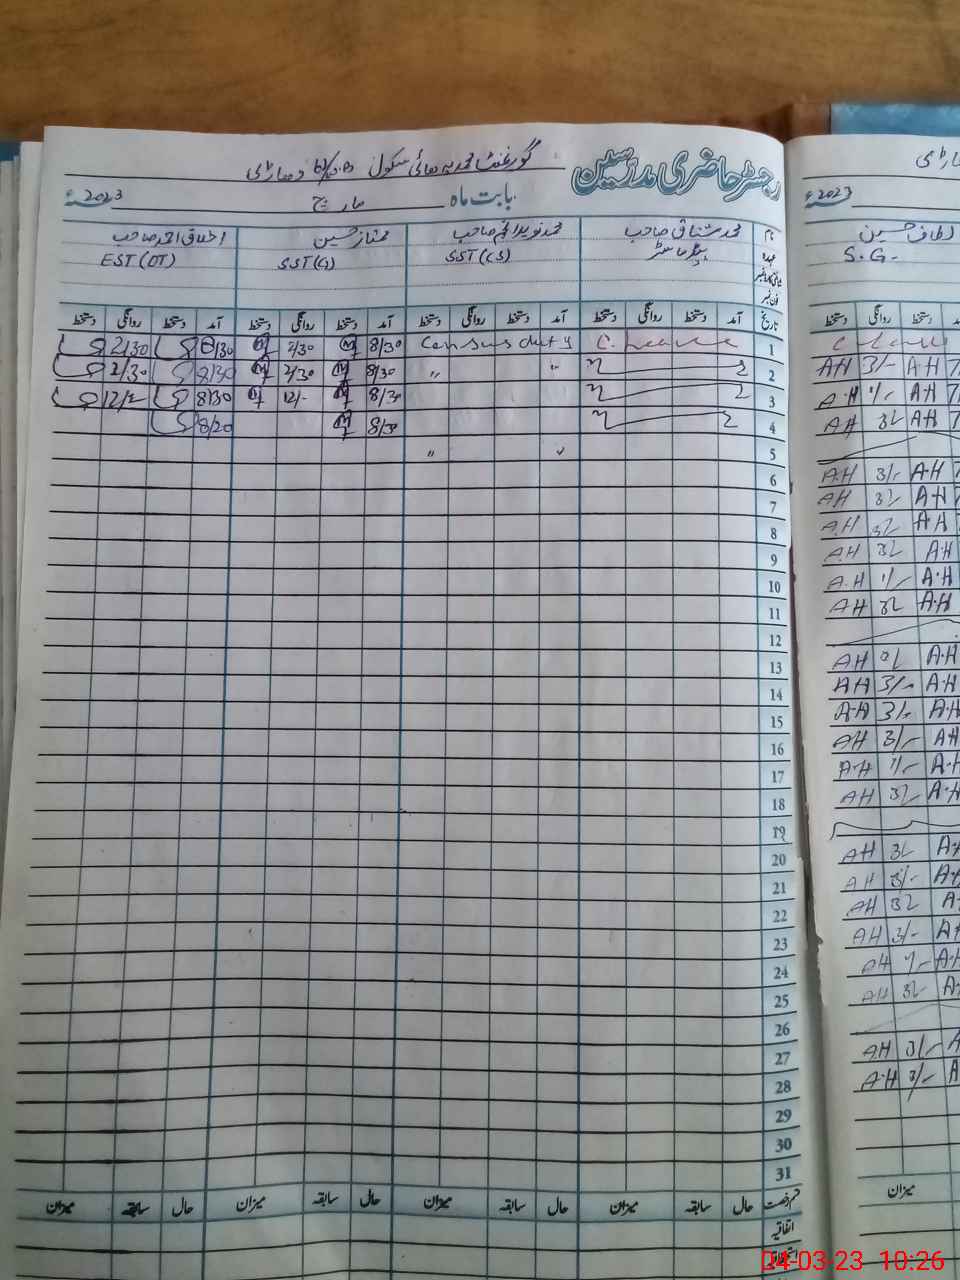 رجسٹر حاضری مدرسین گورنمنٹ محمدیہ ہائی سکول وہاڑی
بابت ماہ مارچ 2023ء
نام محمد مشتاق صاحب محمد نوید انجم صاحب ممتاز حسین اخلاق احمد صاحب
عہدہ ہیڈ ماسٹر SST(CS) SST(G) EST(DT)
فون نمبر
تاریخ آمد دستخط روانگی دستخط آمد دستخط روانگی دستخط آمد دستخط روانگی دستخط آمد دستخط روانگی دستخط
1 C. Leave Census duty 8/30 2/30 8/30 2/30
2 〃 〃 8/30 2/30 8/30 2/30
3 8/30 12/- 8/30 12/-
4 8/30 8/20
5 〃 〃
6
7
8
9
10
11
12
13
14
15
16
17
18
19
20
21
22
23
24
25
26
27
28
29
30
31
قسم رخصت حال سابقہ میزان حال سابقہ میزان حال سابقہ میزان حال سابقہ میزان
اتفاقیہ
2023ء
الطاف حسین
S.G.-
دستخط روانگی دستخط
C Leave
A.H 3/- A.H
A.H 1/- A.H
A.H 3/- A.H
A.H 3/- A.H
A.H 3/- A.H
A.H 3/- A.H
A.H 3/- A.H
A.H 1/- A.H
A.H 3/- A.H
A.H A.H
A.H 3/- A.H
A.H 3/- A.H
A.H 3/- A.H
A.H 1/- A.H
A.H 3/- A.H
A.H 3/-
A.H 3/-
A.H 3/-
A.H 3/-
A.H 1/- A.H
A.H 3/-
A.H 3/-
A.H 3/-
میزان
04-03-23 10:26